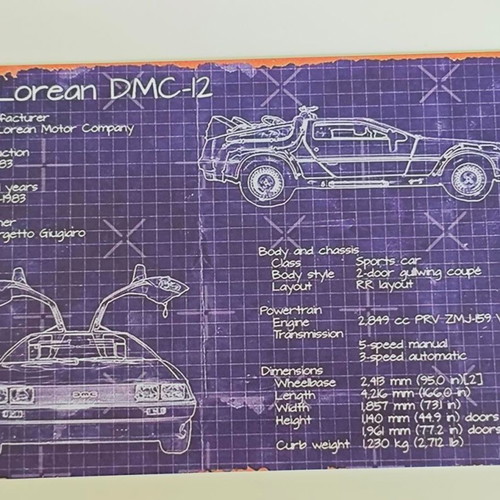 Lorean DMC-12
facturer
Lorean Motor Company
ction
83
years
-1983
ner
rgetto Giugiaro
DMC
Body and chassis
Class Sports car
Body style 2-door gullwing coupé
Layout RR layout
Powertrain
Engine 2,849 cc PRV ZMJ-159 V
Transmission
5-speed manual
3-speed automatic
Dimensions
Wheelbase 2,413 mm (95.0 in)[2]
Length 4,216 mm (166.0 in)
Width 1,857 mm (73.1 in)
Height 1,140 mm (44.9 in) doors
1,961 mm (77.2 in) doors
Curb weight 1,230 kg (2,712 lb)